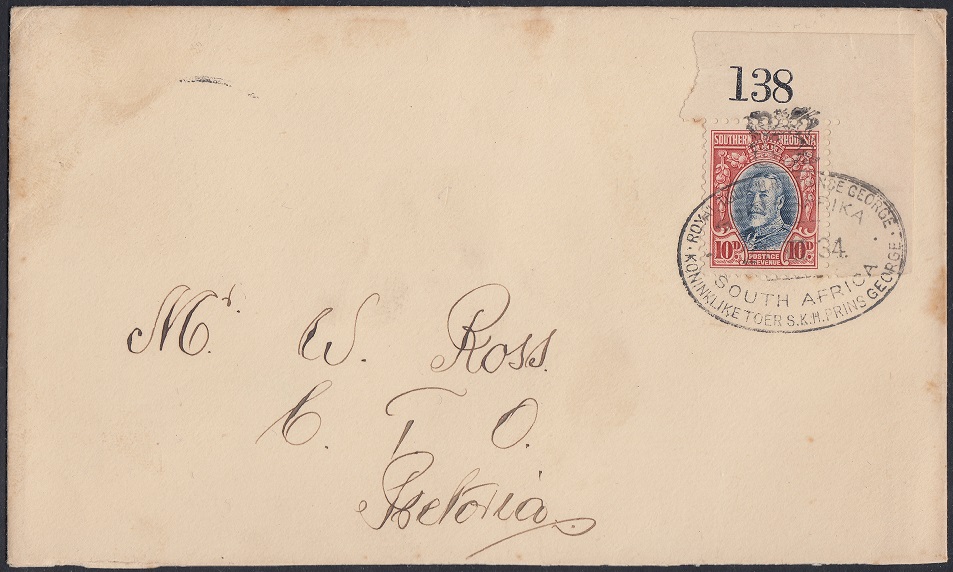 138
SOUTHERN RHODESIA
10D POSTAGE & REVENUE 10D
ROYAL GEORGE ·
34.
SOUTH AFRICA
KONINKLIKE TOER S.K.H. PRINS GEORGE
Mr. W. Ross.
C. T. O.
Pretoria